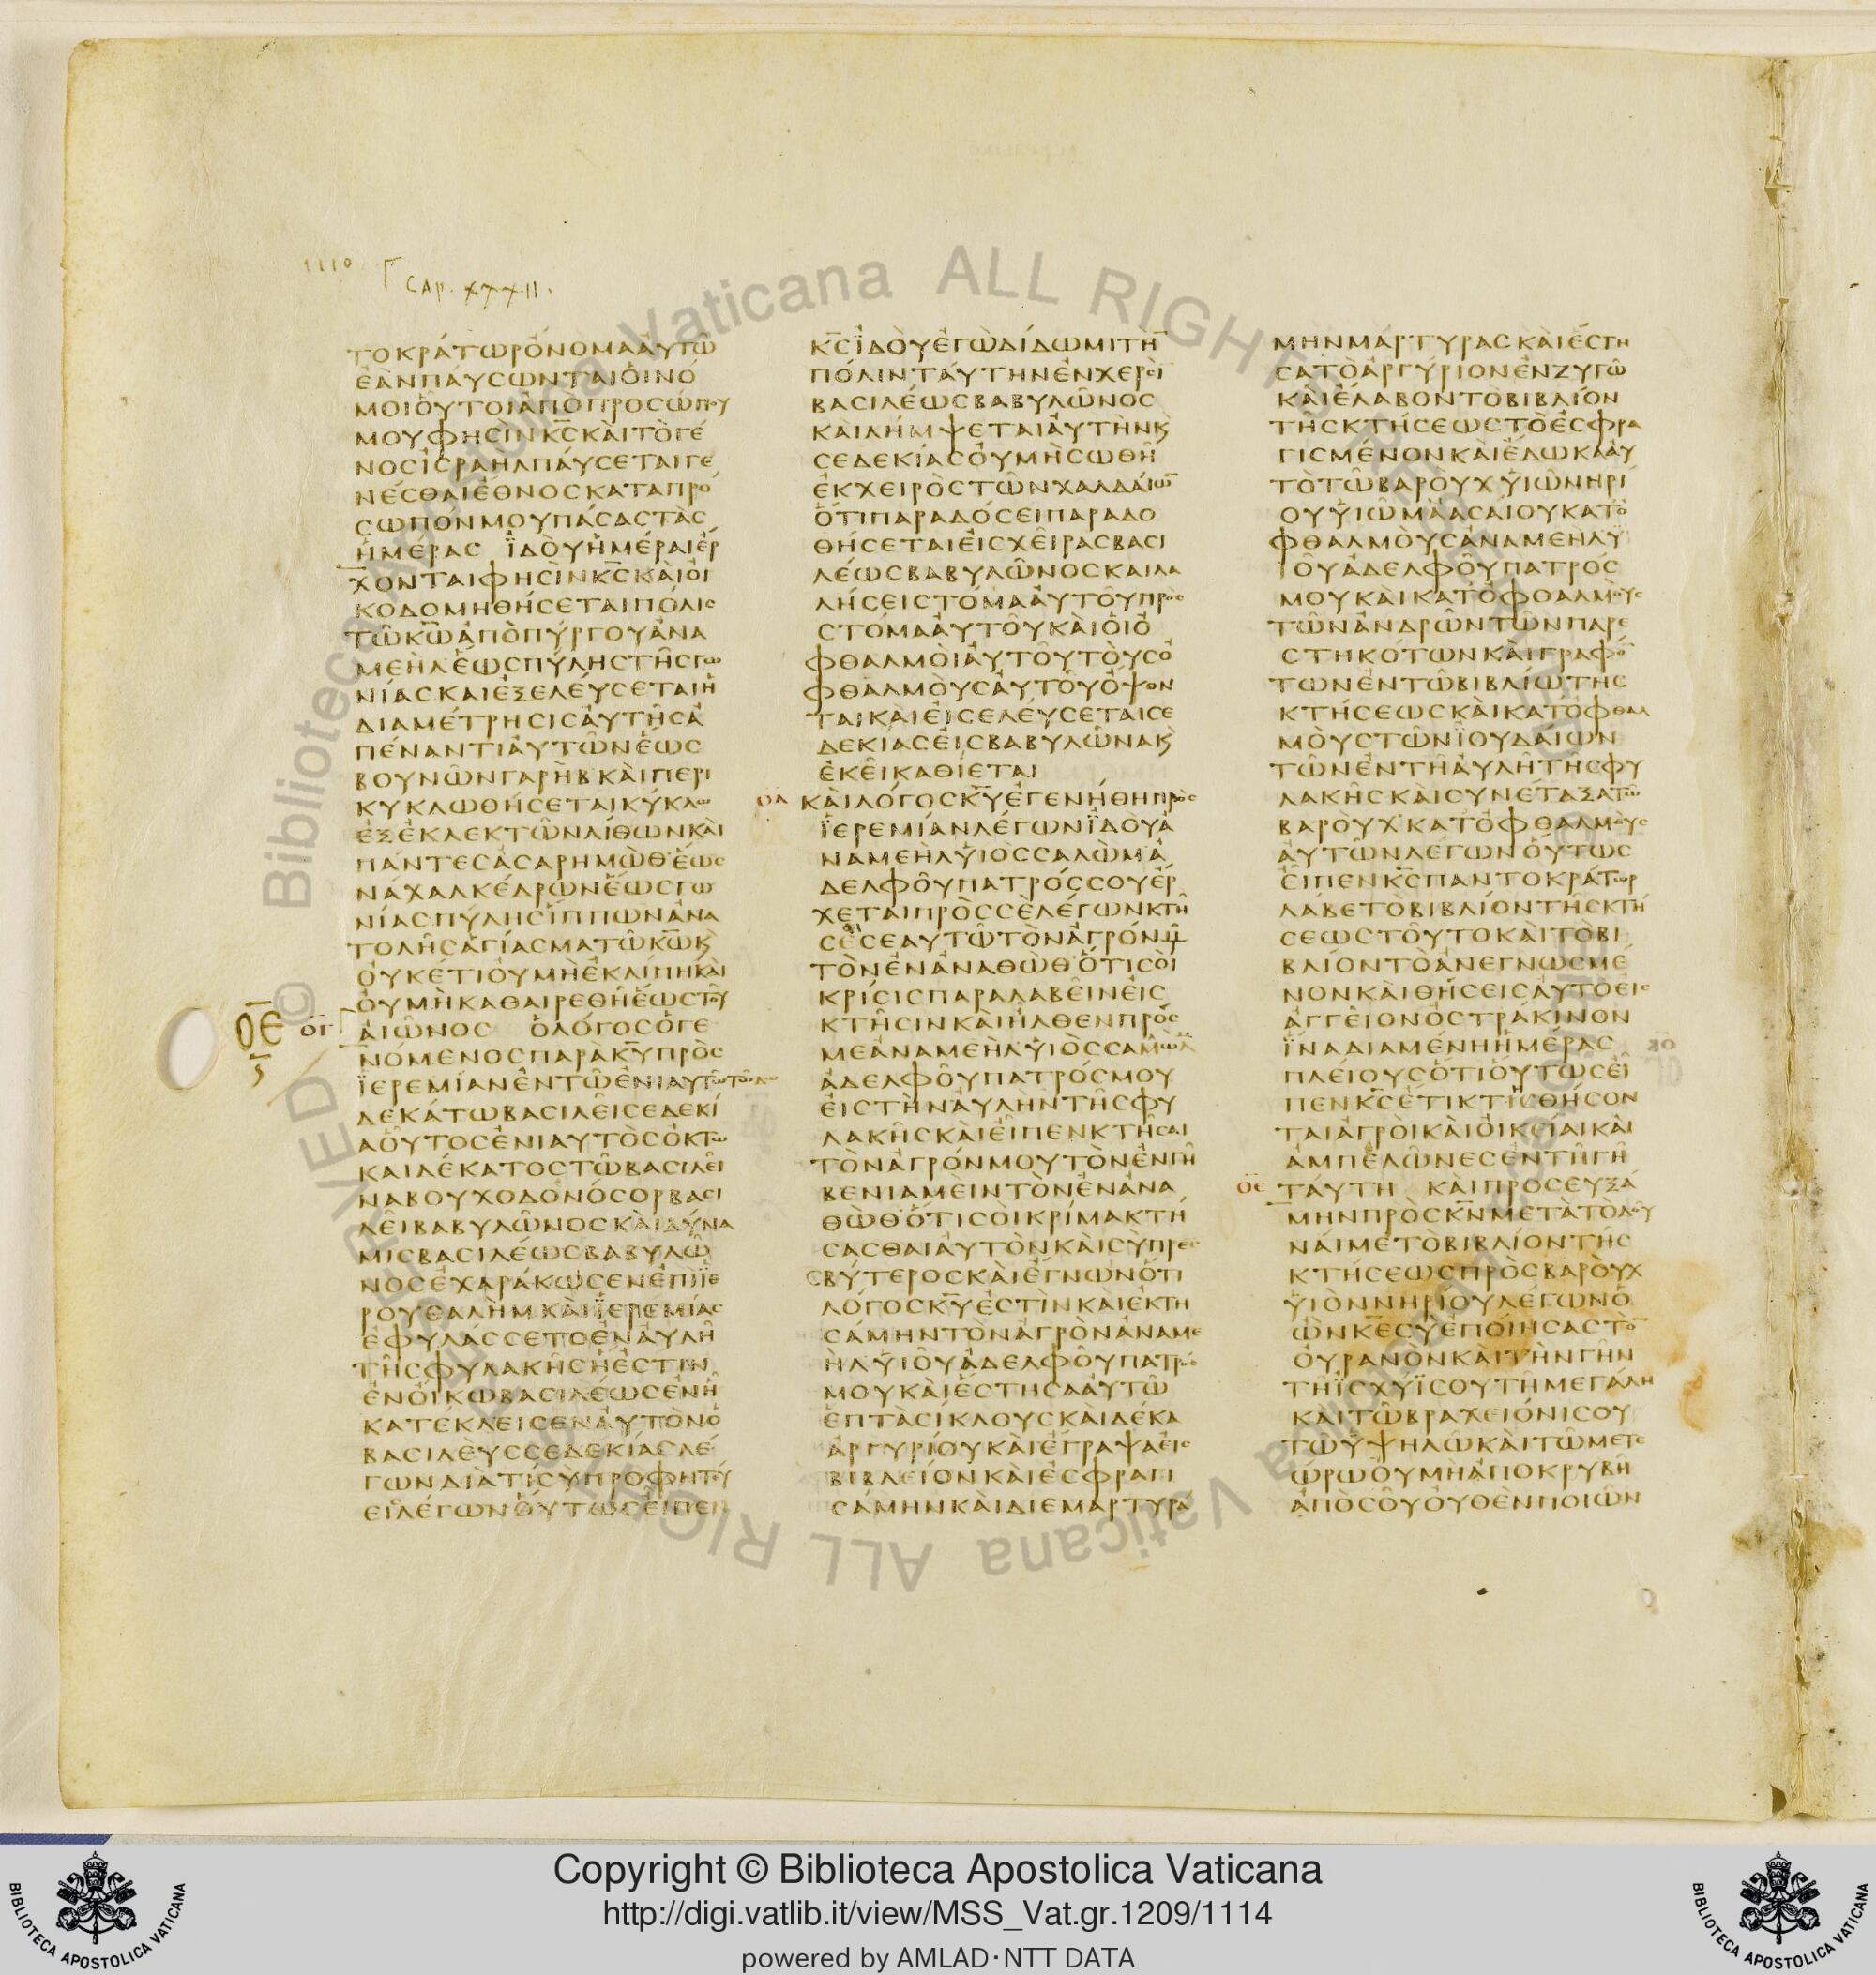 1110
CAP. XXXII.
ΤΟΚΡΑΤΩΡΟΝΟΜΑΑΥΤΩ
ΕΑΝΠΑΥΣΩΝΤΑΙΟΙΝΟ
ΜΟΙΟΥΤΟΙΑΠΟΠΡΟΣΩΠΟΥ
ΜΟΥΦΗΣΙΝΚΣΚΑΙΤΟΓΕ
ΝΟΣΙΣΡΑΗΛΠΑΥΣΕΤΑΙΓΕ
ΝΕΣΘΑΙΕΘΝΟΣΚΑΤΑΠΡΟ
ΣΩΠΟΝΜΟΥΠΑΣΑΣΤΑΣ
ΗΜΕΡΑΣ ΪΔΟΥΗΜΕΡΑΙΕΡ
ΧΟΝΤΑΙΦΗΣΙΝΚΣΚΑΙΟΙ
ΚΟΔΟΜΗΘΗΣΕΤΑΙΠΟΛΙΣ
ΤΩΚΩΑΠΟΠΥΡΓΟΥΑΝΑ
ΜΕΗΛΕΩΣΠΥΛΗΣΤΗΣΓΩ
ΝΙΑΣΚΑΙΕΞΕΛΕΥΣΕΤΑΙΗ
ΔΙΑΜΕΤΡΗΣΙΣΑΥΤΗΣΑ
ΠΕΝΑΝΤΙΑΥΤΩΝΕΩΣ
ΒΟΥΝΩΝΓΑΡΗΒΚΑΙΠΕΡΙ
ΚΥΚΛΩΘΗΣΕΤΑΙΚΥΚΛΩ
ΕΞΕΚΛΕΚΤΩΝΛΙΘΩΝΚΑΙ
ΠΑΝΤΕΣΑΣΑΡΗΜΩΘΕΩΣ
ΝΑΧΑΛΚΕΔΡΩΝΕΩΣΓΩ
ΝΙΑΣΠΥΛΗΣΙΠΠΩΝΑΝΑ
ΤΟΛΗΣΑΓΙΑΣΜΑΤΩΚΩΚ
ΟΥΚΕΤΙΟΥΜΗΕΚΛΙΠΗΚΑΙ
ΟΥΜΗΚΑΘΑΙΡΕΘΗΕΩΣΤΟΥ
ΟΕ ΟΓ ΑΙΩΝΟΣ ΟΛΟΓΟΣΟΓΕ
ΝΟΜΕΝΟΣΠΑΡΑΚΥΠΡΟΣ
ΪΕΡΕΜΙΑΝΕΝΤΩΕΝΙΑΥΤΩΤΩ
ΔΕΚΑΤΩΒΑΣΙΛΕΙΣΕΔΕΚΙ
ΑΟΥΤΟΣΕΝΙΑΥΤΟΣΟΚΤΩ
ΚΑΙΔΕΚΑΤΟΣΤΩΒΑΣΙΛΕΙ
ΝΑΒΟΥΧΟΔΟΝΟΣΟΡΒΑΣΙ
ΛΕΙΒΑΒΥΛΩΝΟΣΚΑΙΔΥΝΑ
ΜΙΣΒΑΣΙΛΕΩΣΒΑΒΥΛΩ
ΝΟΣΕΧΑΡΑΚΩΣΕΝΕΠΙΪΕ
ΡΟΥΣΑΛΗΜΚΑΙΪΕΡΕΜΙΑΣ
ΕΦΥΛΑΣΣΕΤΟΕΝΑΥΛΗ
ΤΗΣΦΥΛΑΚΗΣΗΕΣΤΙΝ
ΕΝΟΙΚΩΒΑΣΙΛΕΩΣΕΝΗ
ΚΑΤΕΚΛΕΙΣΕΝΑΥΤΟΝΟ
ΒΑΣΙΛΕΥΣΣΕΔΕΚΙΑΣΛΕ
ΓΩΝΔΙΑΤΙΣΥΠΡΟΦΗΤΕΥ
ΕΙΣΛΕΓΩΝΟΥΤΩΣΕΙΠΕΝ
ΚΣΪΔΟΥΕΓΩΔΙΔΩΜΙΤΗ
ΠΟΛΙΝΤΑΥΤΗΝΕΝΧΕΡΣΙ
ΒΑΣΙΛΕΩΣΒΑΒΥΛΩΝΟΣ
ΚΑΙΛΗΜΨΕΤΑΙΑΥΤΗΝΚ
ΣΕΔΕΚΙΑΣΟΥΜΗΣΩΘΗ
ΕΚΧΕΙΡΟΣΤΩΝΧΑΛΔΑΙΩ
ΟΤΙΠΑΡΑΔΟΣΕΙΠΑΡΑΔΟ
ΘΗΣΕΤΑΙΕΙΣΧΕΙΡΑΣΒΑΣΙ
ΛΕΩΣΒΑΒΥΛΩΝΟΣΚΑΙΛΑ
ΛΗΣΕΙΣΤΟΜΑΑΥΤΟΥΠΡΟΣ
ΣΤΟΜΑΑΥΤΟΥΚΑΙΟΙΟ
ΦΘΑΛΜΟΙΑΥΤΟΥΤΟΥΣΟ
ΦΘΑΛΜΟΥΣΑΥΤΟΥΟΨΟΝ
ΤΑΙΚΑΙΕΙΣΕΛΕΥΣΕΤΑΙΣΕ
ΔΕΚΙΑΣΕΙΣΒΑΒΥΛΩΝΑΚ
ΕΚΕΙΚΑΘΙΕΤΑΙ
ΟΔ ΚΑΙΛΟΓΟΣΚΥΕΓΕΝΗΘΗΠΡΟΣ
ΪΕΡΕΜΙΑΝΛΕΓΩΝΪΔΟΥΑ
ΝΑΜΕΗΛΫΙΟΣΣΑΛΩΜΑ
ΔΕΛΦΟΥΠΑΤΡΟΣΣΟΥΕΡ
ΧΕΤΑΙΠΡΟΣΣΕΛΕΓΩΝΚΤΗ
ΣΕΣΕΑΥΤΩΤΟΝΑΓΡΟΝΜ
ΤΟΝΕΝΑΝΑΘΩΘΟΤΙΣΟΙ
ΚΡΙΣΙΣΠΑΡΑΛΑΒΕΙΝΕΙΣ
ΚΤΗΣΙΝΚΑΙΗΛΘΕΝΠΡΟΣ
ΜΕΑΝΑΜΕΗΛΫΙΟΣΣΑΛΩΜ
ΑΔΕΛΦΟΥΠΑΤΡΟΣΜΟΥ
ΕΙΣΤΗΝΑΥΛΗΝΤΗΣΦΥ
ΛΑΚΗΣΚΑΙΕΙΠΕΝΚΤΗΣΑΙ
ΤΟΝΑΓΡΟΝΜΟΥΤΟΝΕΝΓΗ
ΒΕΝΙΑΜΕΙΝΤΟΝΕΝΑΝΑ
ΘΩΘΟΤΙΣΟΙΚΡΙΜΑΚΤΗ
ΣΑΣΘΑΙΑΥΤΟΝΚΑΙΣΥΠΡΕΣ
ΒΥΤΕΡΟΣΚΑΙΕΓΝΩΝΟΤΙ
ΛΟΓΟΣΚΥΕΣΤΙΝΚΑΙΕΚΤΗ
ΣΑΜΗΝΤΟΝΑΓΡΟΝΑΝΑΜΕ
ΗΛΫΙΟΥΑΔΕΛΦΟΥΠΑΤΡΟΣ
ΜΟΥΚΑΙΕΣΤΗΣΑΑΥΤΩ
ΕΠΤΑΣΙΚΛΟΥΣΚΑΙΔΕΚΑ
ΑΡΓΥΡΙΟΥΚΑΙΕΓΡΑΨΑΕΙΣ
ΒΙΒΛΕΙΟΝΚΑΙΕΣΦΡΑΓΙ
ΣΑΜΗΝΚΑΙΔΙΕΜΑΡΤΥΡΑ
ΜΗΝΜΑΡΤΥΡΑΣΚΑΙΕΣΤΗ
ΣΑΤΟΑΡΓΥΡΙΟΝΕΝΖΥΓΩ
ΚΑΙΕΛΑΒΟΝΤΟΒΙΒΛΙΟΝ
ΤΗΣΚΤΗΣΕΩΣΤΟΕΣΦΡΑ
ΓΙΣΜΕΝΟΝΚΑΙΕΔΩΚΑΑΥ
ΤΟΤΩΒΑΡΟΥΧΫΙΩΝΗΡΙ
ΟΥΫΙΩΜΑΑΣΑΙΟΥΚΑΤΟ
ΦΘΑΛΜΟΥΣΑΝΑΜΕΗΛΫ
ΙΟΥΑΔΕΛΦΟΥΠΑΤΡΟΣ
ΜΟΥΚΑΙΚΑΤΟΦΘΑΛΜΟΥΣ
ΤΩΝΑΝΔΡΩΝΤΩΝΠΑΡΕ
ΣΤΗΚΟΤΩΝΚΑΙΓΡΑΦΟ
ΤΩΝΕΝΤΩΒΙΒΛΙΩΤΗΣ
ΚΤΗΣΕΩΣΚΑΙΚΑΤΟΦΘΑΛ
ΜΟΥΣΤΩΝΪΟΥΔΑΙΩΝ
ΤΩΝΕΝΤΗΑΥΛΗΤΗΣΦΥ
ΛΑΚΗΣΚΑΙΣΥΝΕΤΑΞΑΤΩ
ΒΑΡΟΥΧΚΑΤΟΦΘΑΛΜΟΥΣ
ΑΥΤΩΝΛΕΓΩΝΟΥΤΩΣ
ΕΙΠΕΝΚΣΠΑΝΤΟΚΡΑΤΩΡ
ΛΑΒΕΤΟΒΙΒΛΙΟΝΤΗΣΚΤΗ
ΣΕΩΣΤΟΥΤΟΚΑΙΤΟΒΙ
ΒΛΙΟΝΤΟΑΝΕΓΝΩΣΜΕ
ΝΟΝΚΑΙΘΗΣΕΙΣΑΥΤΟΕΙΣ
ΑΓΓΕΙΟΝΟΣΤΡΑΚΙΝΟΝ
ΪΝΑΔΙΑΜΕΝΗΗΜΕΡΑΣ
ΠΛΕΙΟΥΣΟΤΙΟΥΤΩΣΕΙ
ΠΕΝΚΣΕΤΙΚΤΙΣΘΗΣΟΝ
ΤΑΙΑΓΡΟΙΚΑΙΟΙΚΙΑΙΚΑΙ
ΑΜΠΕΛΩΝΕΣΕΝΤΗΓΗ
ΟΕ ΤΑΥΤΗ ΚΑΙΠΡΟΣΕΥΞΑ
ΜΗΝΠΡΟΣΚΝΜΕΤΑΤΟΔΟΥ
ΝΑΙΜΕΤΟΒΙΒΛΙΟΝΤΗΣ
ΚΤΗΣΕΩΣΠΡΟΣΒΑΡΟΥΧ
ΫΙΟΝΝΗΡΙΟΥΛΕΓΩΝΟ
ΩΝΚΕΣΥΕΠΟΙΗΣΑΣΤΟ
ΟΥΡΑΝΟΝΚΑΙΤΗΝΓΗΝ
ΤΗΪΣΧΥΪΣΟΥΤΗΜΕΓΑΛΗ
ΚΑΙΤΩΒΡΑΧΕΙΟΝΙΣΟΥ
ΤΩΫΨΗΛΩΚΑΙΤΩΜΕΤΕ
ΩΡΩΟΥΜΗΑΠΟΚΡΥΒΗ
ΑΠΟΣΟΥΟΥΘΕΝΠΟΙΩΝ
© Biblioteca Apostolica Vaticana ALL RIGHTS RESERVED
Copyright © Biblioteca Apostolica Vaticana
http://digi.vatlib.it/view/MSS_Vat.gr.1209/1114
powered by AMLAD·NTT DATA
BIBLIOTECA APOSTOLICA VATICANA
BIBLIOTECA APOSTOLICA VATICANA